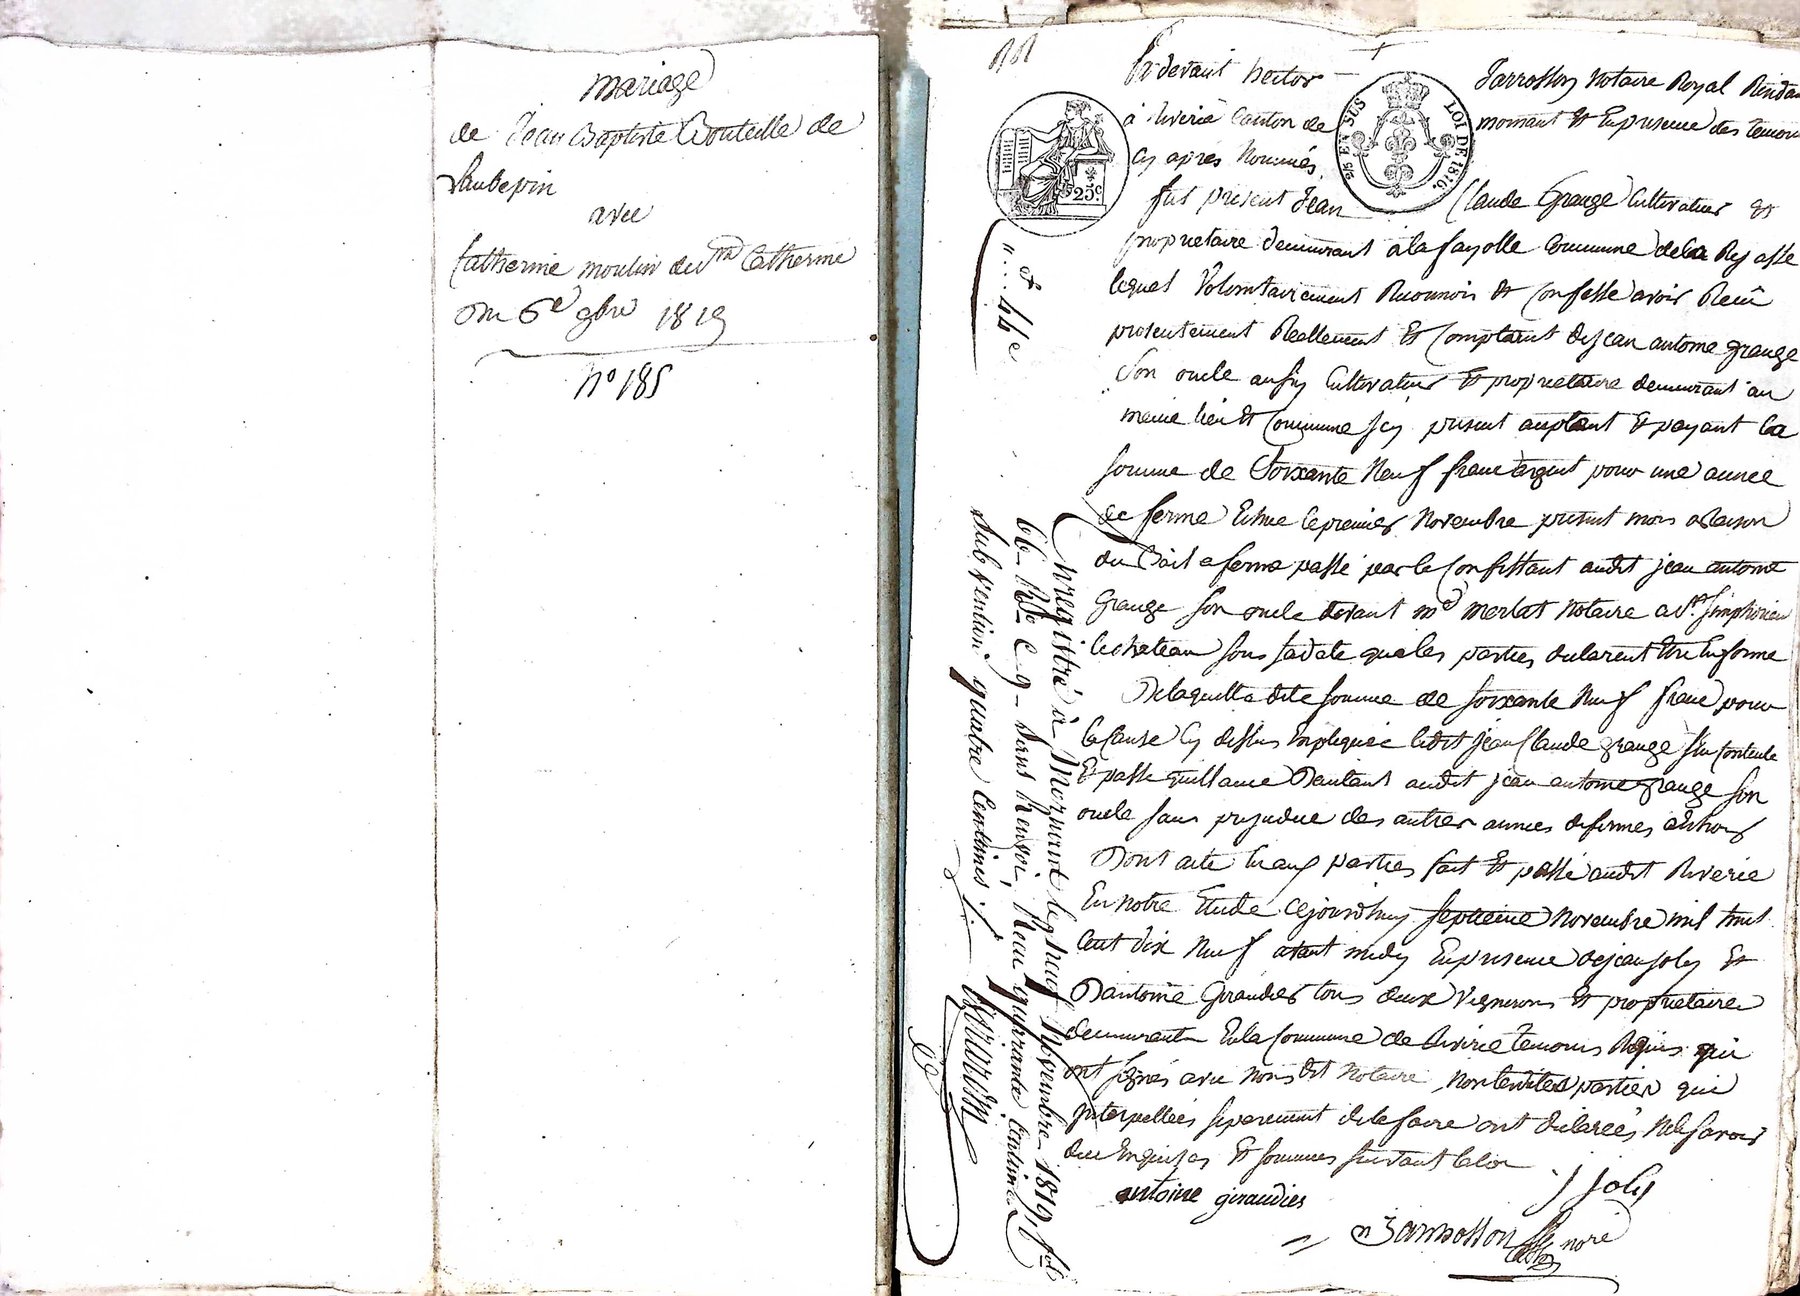 mariage
de Jean Baptiste Bouteille de
Laubepin
avec
Catherine moulin de Ste Catherine
Du 6e 9bre 1819
N° 185
Par devant hector Jarrosson Notaire Royal Résidant
à Riverie Canton de mornant Et En presence des temoins
Cy après Nommés.
EN SUS LOI DE 1816.
25 c
fut present Jean Claude Grange Cultivateur Et
proprietaire demeurant à la fayolle Commune de la Rajasse
lequel Volontairement Reconnoit Et Confesse avoir Recû
presentement Reellement Et Comptant de jean antoine grange
Son oncle aussy Cultivateur Et proprietaire demeurant au
meme lieu Et Commune Icy present acceptant Et payant la
somme de Soixante Neuf franc argent pour une année
de ferme Echue le premier Novembre present mois a Raison
du Bail a ferme passé par le Confessant audit jean antoine
Grange son oncle devant me merlat Notaire a St Simphorien
le chateau sous sa date que les parties declarent Etre En forme
De laquelle dite somme de soixante Neuf franc pour
la Cause Cy dessus Expliquée ledit jean Claude grange S'en Contente
Et passe quittance D'autant audit jean antoine grange son
oncle sans prejudice des autres années de fermes
Dont acte lu aux parties fait Et passé audit Riverie
En notre Etude Cejourdhuy septieme Novembre mil huit
Cent dix Neuf avant midy En presence de jean joly Et
D'antoine Giraudier tous deux Vignerons Et proprietaire
demeurant En la Commune de Riverie temoins Requis qui
ont signés avec Nous dit Notaire, Non lesdites parties qui
Interpellées separement de le faire ont declarées Ne le savoir
de ce Enquises Et sommées suivant la loi
antoine giraudier
J Joly
Jarrosson nore
Enregistré à Mornant le neuf Novembre 1819, fol
66 Ro C 9 sans Renvoi, Reçu quarante Centimes,
Subvention quatre Centimes ./.
44 c